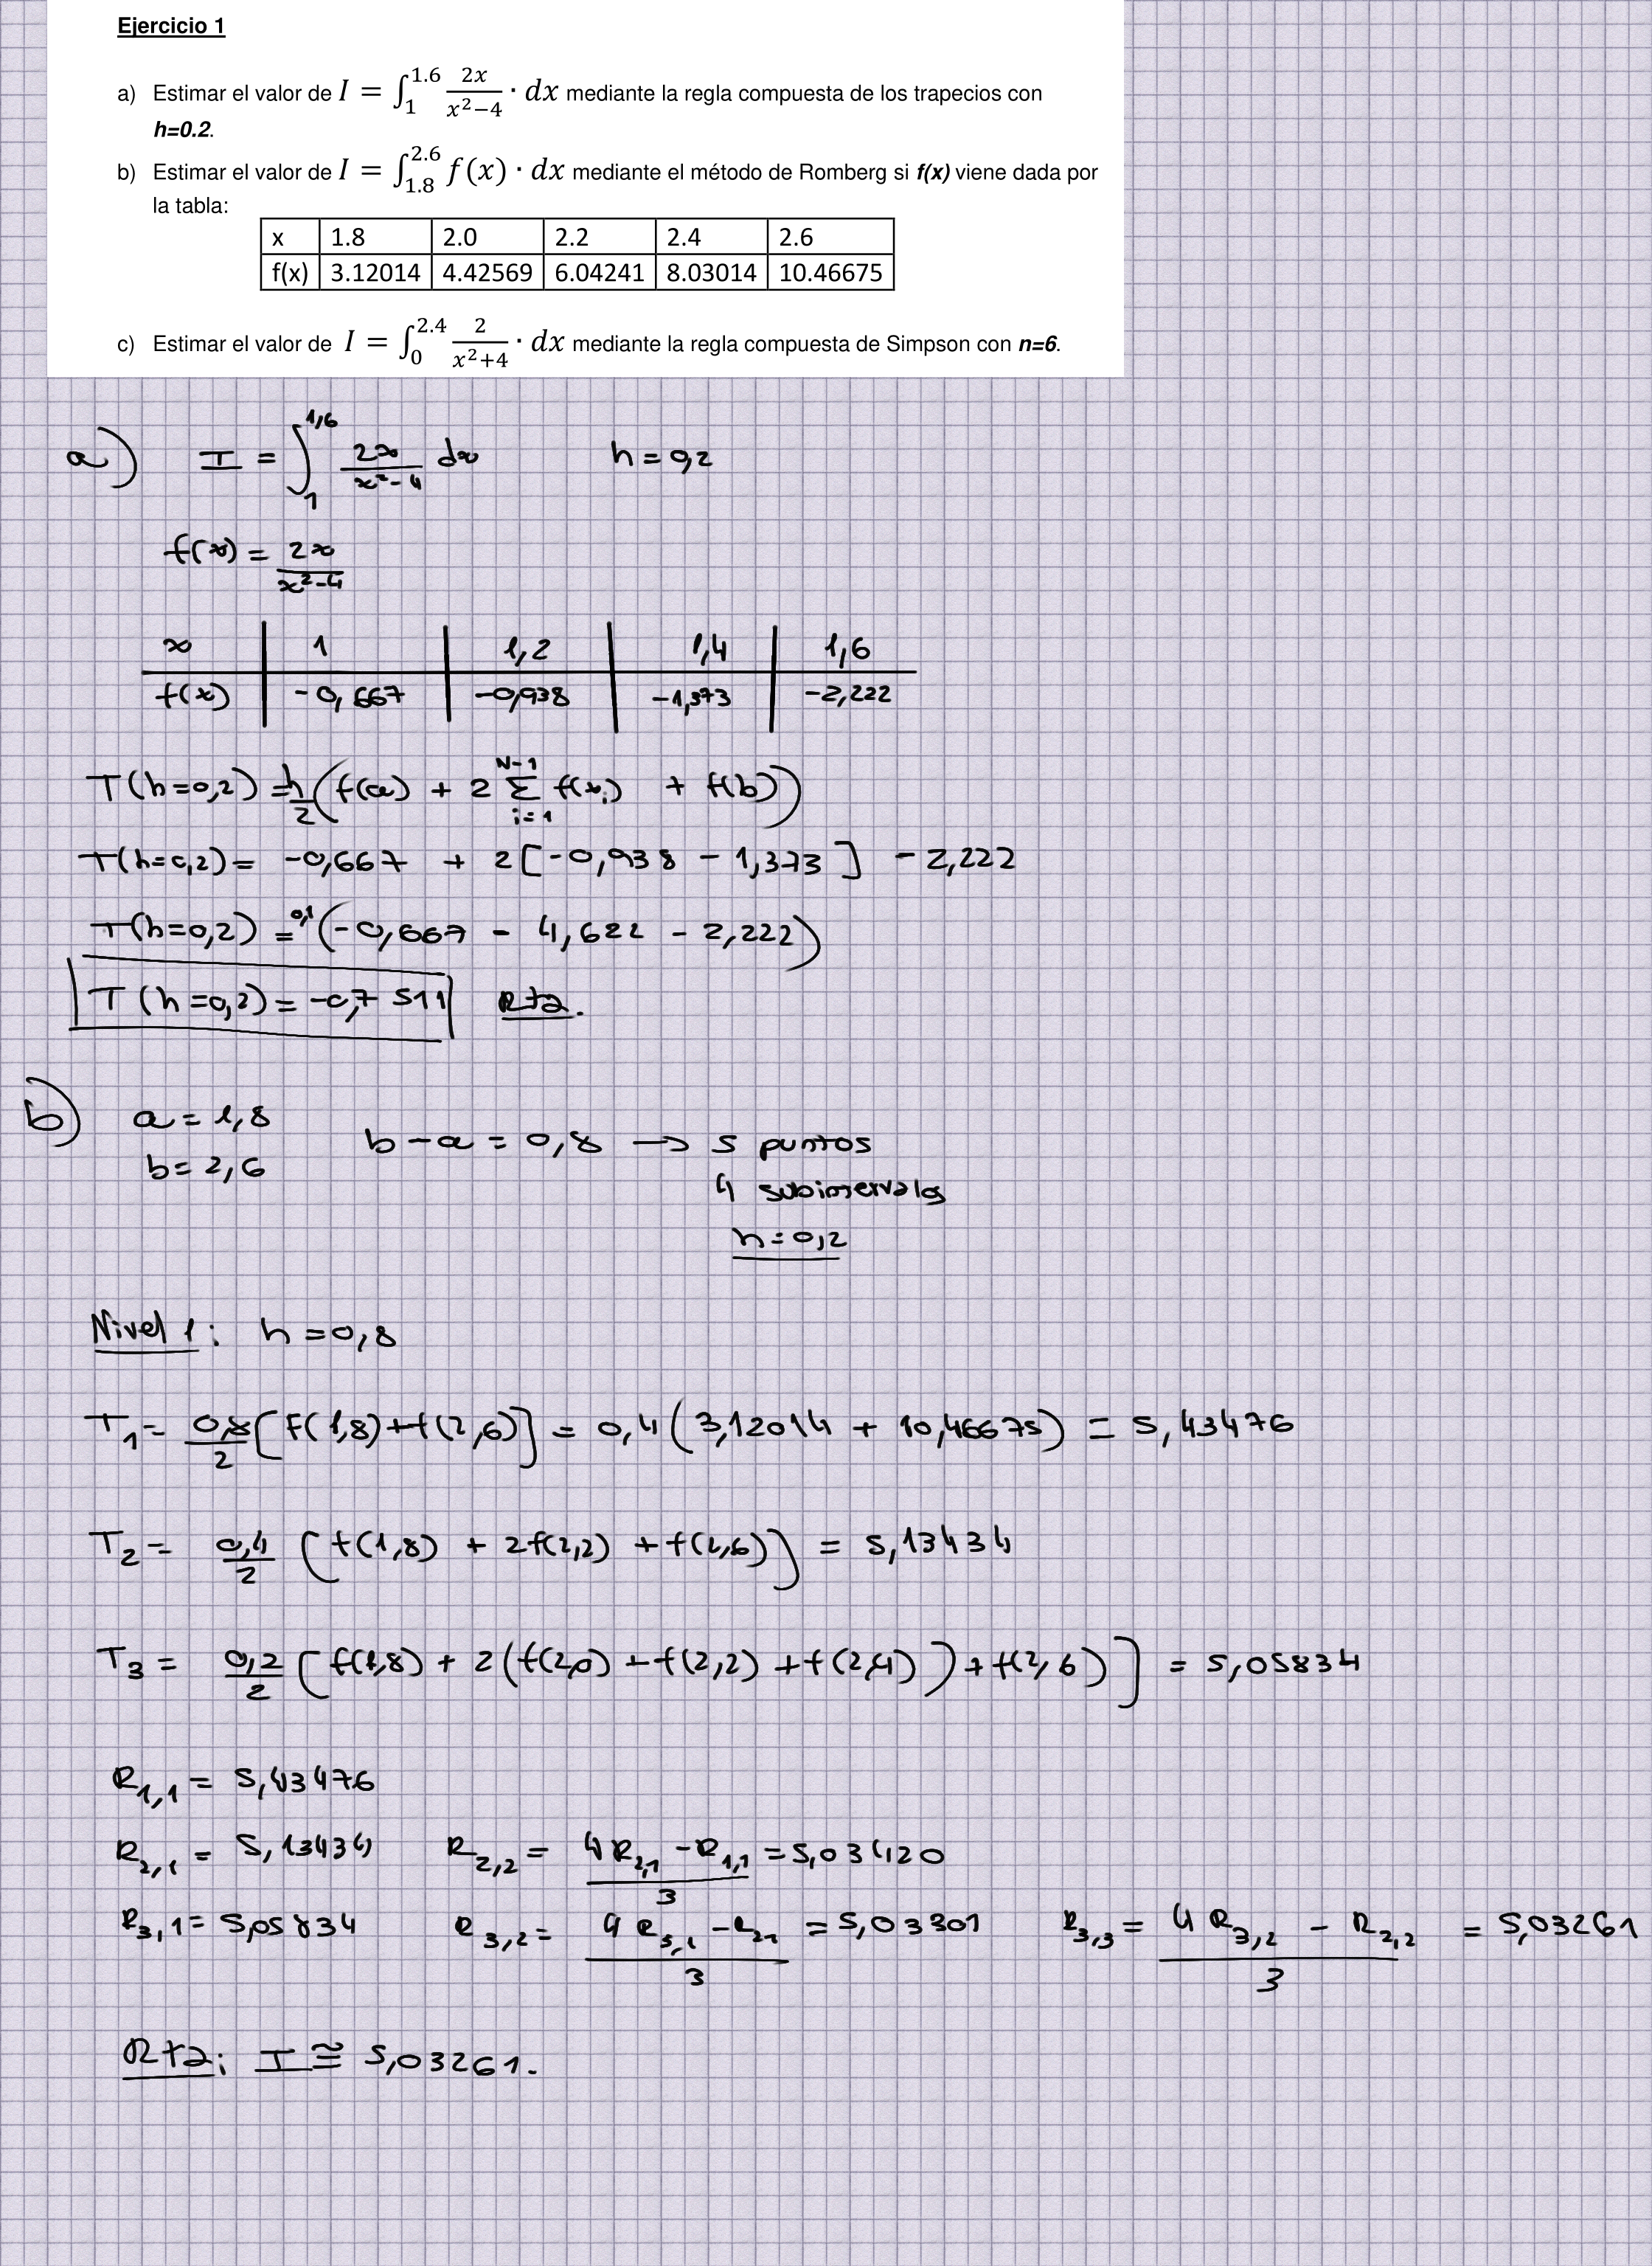 Ejercicio 1
a) Estimar el valor de I = ∫_1^1.6 2x/(x²−4) · dx mediante la regla compuesta de los trapecios con
h=0.2.
b) Estimar el valor de I = ∫_1.8^2.6 f(x) · dx mediante el método de Romberg si f(x) viene dada por
la tabla:
x 1.8 2.0 2.2 2.4 2.6
f(x) 3.12014 4.42569 6.04241 8.03014 10.46675
c) Estimar el valor de I = ∫_0^2.4 2/(x²+4) · dx mediante la regla compuesta de Simpson con n=6.
a) I = ∫_1^1,6 2x/(x²-4) dx h = 0,2
f(x) = 2x/(x²-4)
x 1 1,2 1,4 1,6
f(x) -0,667 -0,938 -1,373 -2,222
T(h=0,2) = h/2 (f(a) + 2 Σ_{i=1}^{N-1} f(x_i) + f(b))
T(h=0,2) = -0,667 + 2[-0,938 - 1,373] - 2,222
T(h=0,2) = 0,1 (-0,667 - 4,622 - 2,222)
T(h=0,2) = -0,7511 Rta.
b) a = 1,8
b = 2,6
b - a = 0,8 → 5 puntos
4 subintervalos
h = 0,2
Nivel 1: h = 0,8
T_1 = 0,8/2 [f(1,8) + f(2,6)] = 0,4 (3,12014 + 10,46675) = 5,43476
T_2 = 0,4/2 [f(1,8) + 2f(2,2) + f(2,6)] = 5,13434
T_3 = 0,2/2 [f(1,8) + 2(f(2,0) + f(2,2) + f(2,4)) + f(2,6)] = 5,05834
R_1,1 = 5,43476
R_2,1 = 5,13434 R_2,2 = (4R_2,1 - R_1,1)/3 = 5,034120
R_3,1 = 5,05834 R_3,2 = (4R_3,1 - R_21)/3 = 5,03301 R_3,3 = (4R_3,2 - R_2,2)/3 = 5,03261
Rta: I ≅ 5,03261.